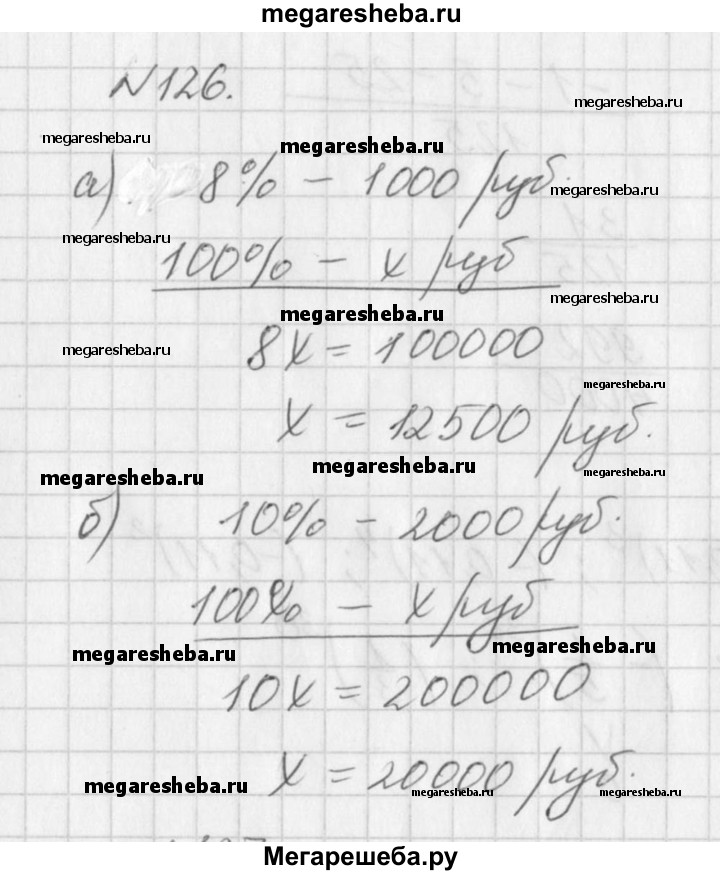 megaresheba.ru
N 126.
megaresheba.ru
megaresheba.ru
megaresheba.ru
а) 8% - 1000 руб.
megaresheba.ru
megaresheba.ru
100% - x руб
megaresheba.ru
megaresheba.ru
megaresheba.ru
8x = 100000
megaresheba.ru
x = 12500 руб.
megaresheba.ru
megaresheba.ru
megaresheba.ru
б) 10% - 2000 руб.
100% - x руб
megaresheba.ru
megaresheba.ru
10x = 200000
x = 20000 руб.
megaresheba.ru
megaresheba.ru
megaresheba.ru
Мегарешеба.ру